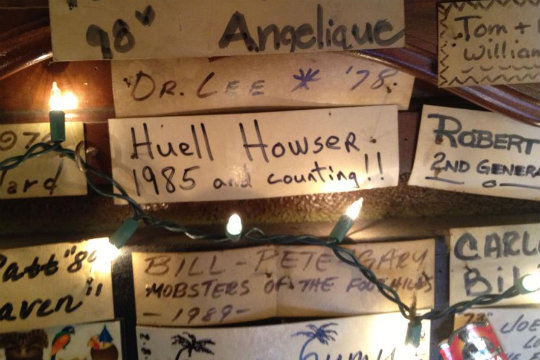 98" Angelique
Tom +
William
DR. LEE * '78
197
Tard
Huell Howser
1985 and counting!!
ROBERT
2ND GENERA
Patt "89
aven"
BILL-PETE-GARY
MOBSTERS OF THE FOOTHILLS
-1989-
CARL
Bil
JOE